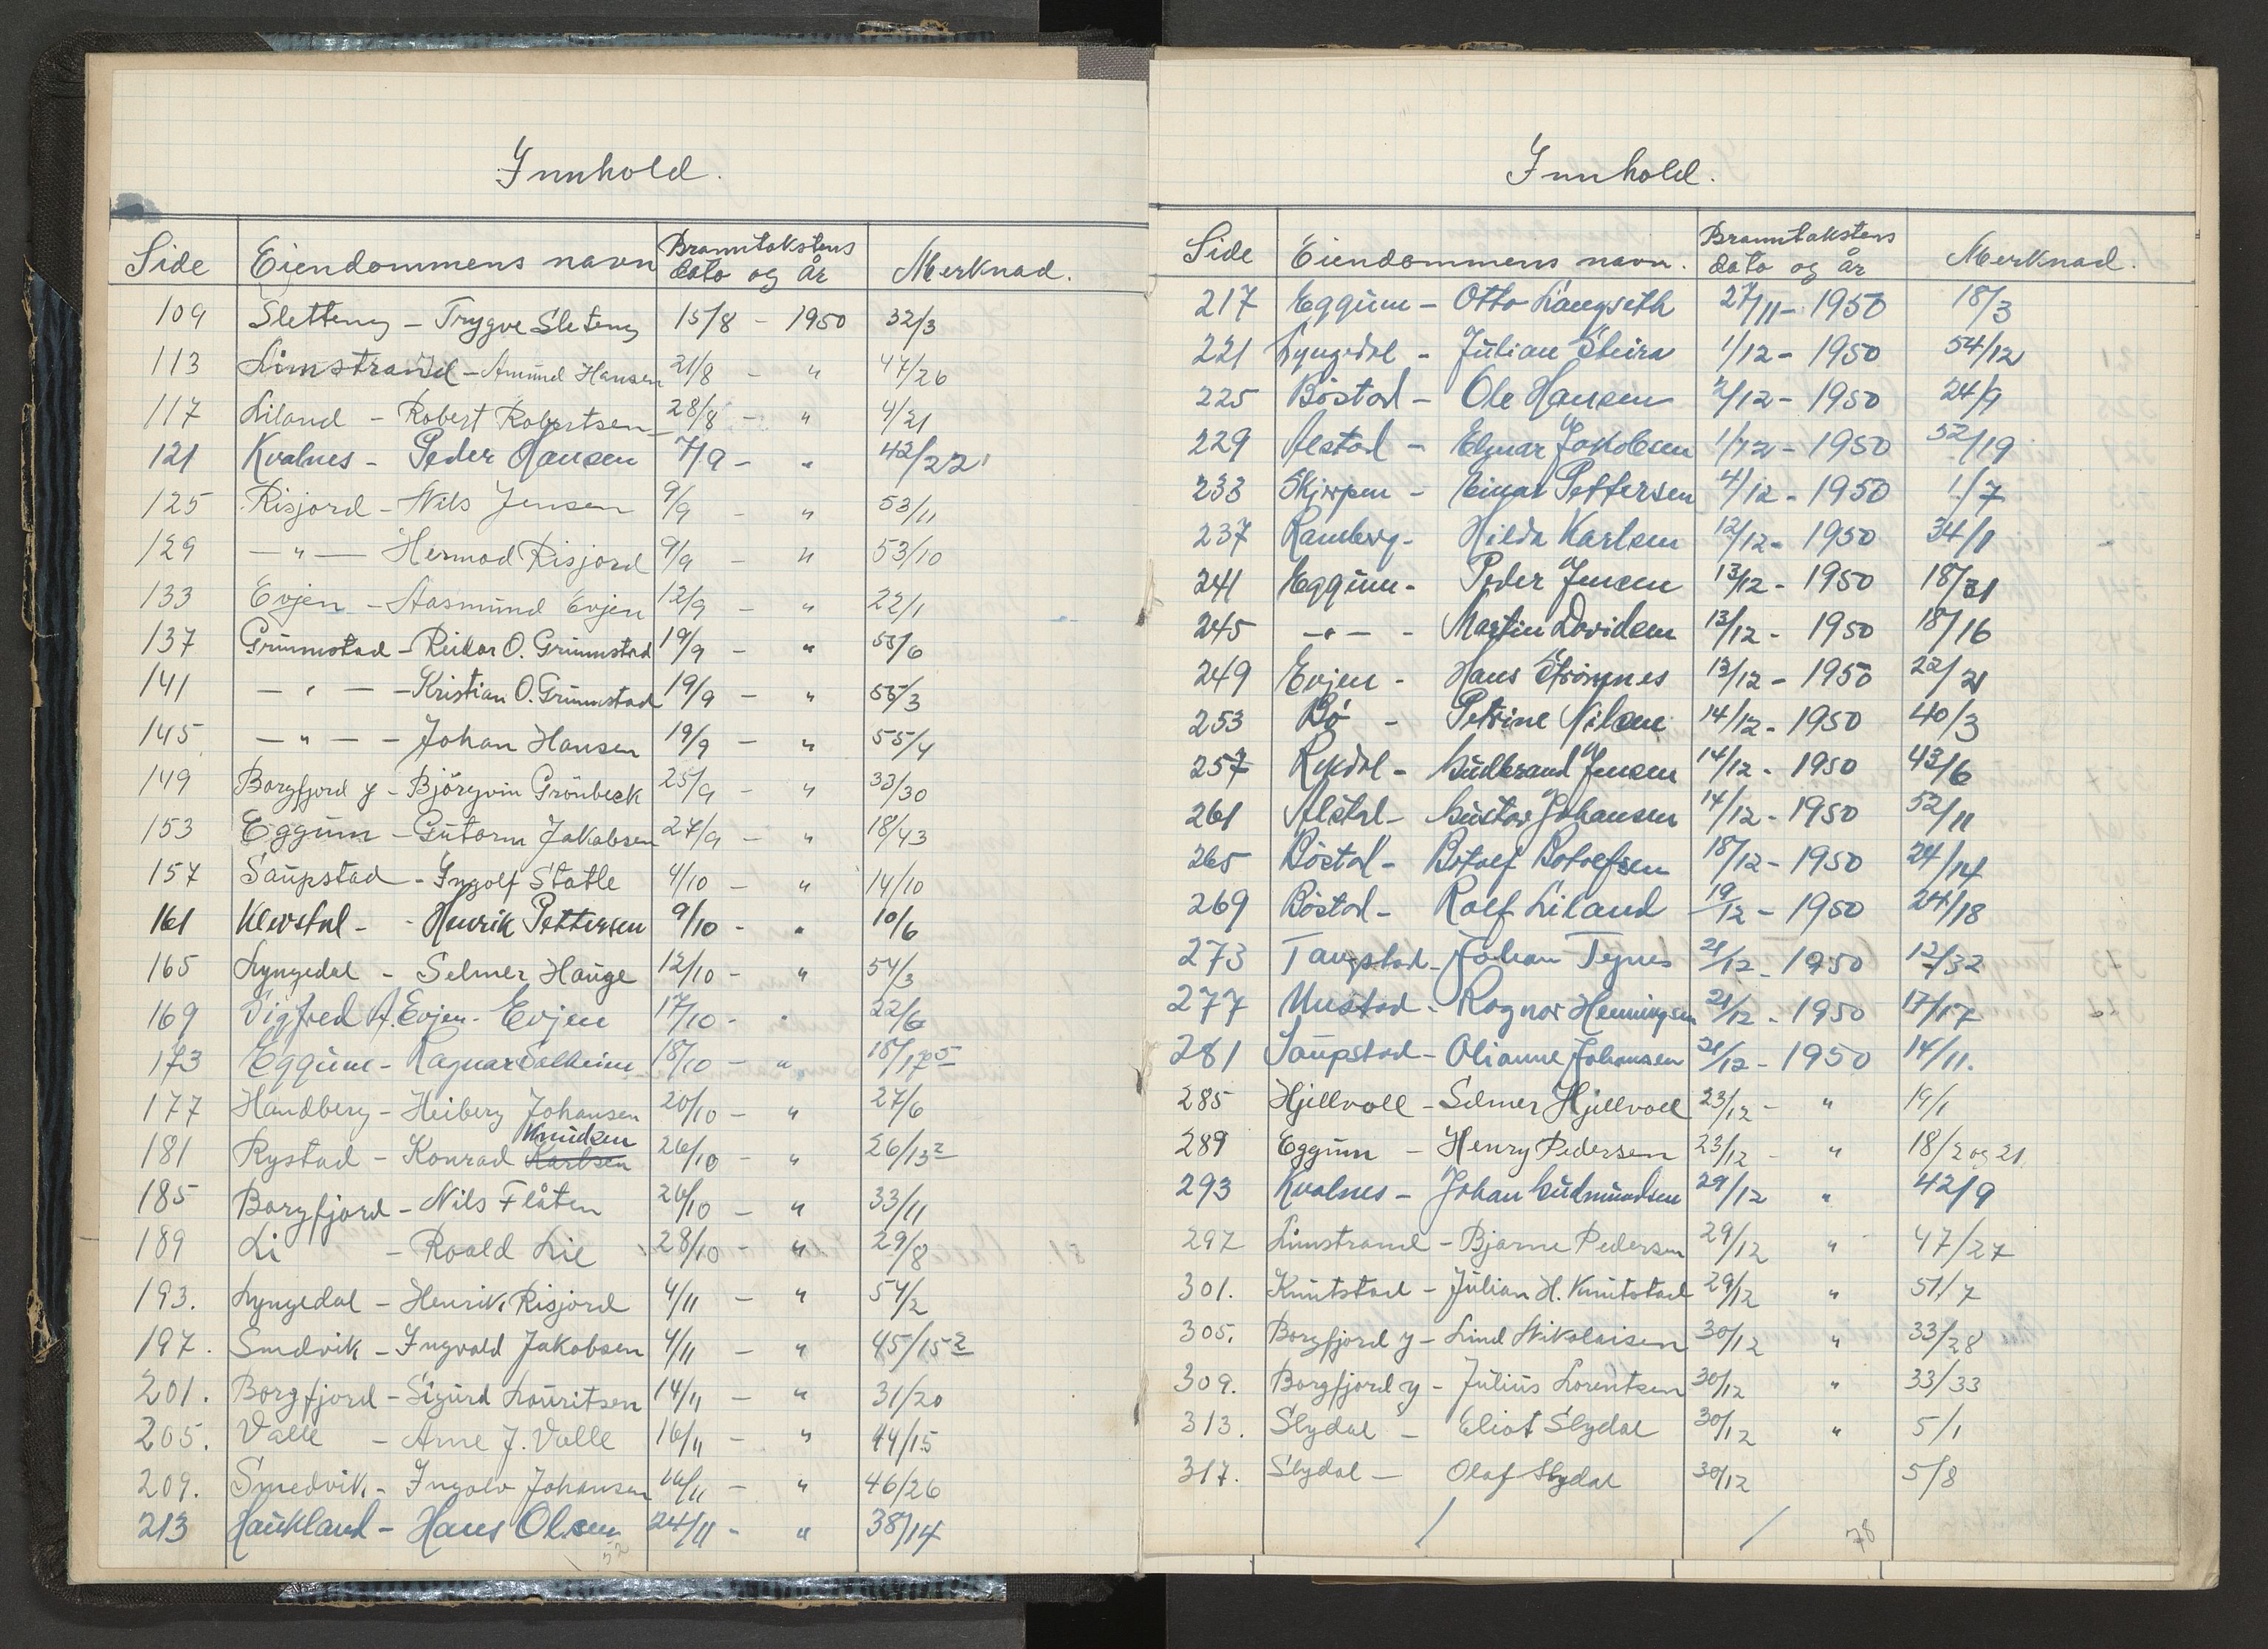 Innhold.
Side Eiendommens navn Branntakstens dato og år Merknad.
109 Sletteng - Trygve Sleteng 15/8 - 1950 32/3
113 Limstrand - Amund Hansen 21/8 - " 47/26
117 Liland - Robert Robertsen 28/8 - " 4/21
121 Kvalnes - Peder Hansen 7/9 - " 42/22
125 Risjord - Nils Jensen 9/9 - " 53/11
129 — " — Hermod Risjord 9/9 - " 53/10
133 Evjen - Aasmund Evjen 12/9 - " 22/1
137 Grunnstad - Reidar O. Grunnstad 19/9 - " 55/6
141 — " — - Kristian O. Grunnstad 19/9 - " 55/3
145 — " — - Johan Hansen 19/9 - " 55/4
149 Borgfjord y - Björgvin Grönbeck 25/9 - " 33/30
153 Eggum - Gutorm Jakobsen 27/9 - " 18/43
157 Saupstad - Ingolf Statle 4/10 - " 14/10
161 Klevstal - Henrik Pettersen 9/10 - " 10/6
165 Lyngedal - Selmer Hauge 12/10 - " 54/3
169 Sigfred A. Evjen - Evjen 17/10 - " 22/6
173 Eggum - Ragnar Solheim 18/10 - " 18/175
177 Handberg - Heiberg Johansen 20/10 - " 27/6
181 Rystad - Konrad Karlsen Knudsen 26/10 - " 26/132
185 Borgfjord - Nils Flåten 26/10 - " 33/11
189 Li - Roald Lie 28/10 - " 29/8
193. Lyngedal - Henrik Risjord 4/11 - " 54/2
197. Smedvik - Ingvald Jakobsen 4/11 - " 45/152
201. Borgfjord - Sigurd Lauritsen 14/11 - " 31/20
205. Valle - Arne J. Valle 16/11 - " 44/15
209. Smedvik - Ingolv Johansen 16/11 - " 46/26
213 Haukland - Hans Olsen 24/11 - " 38/14
Innhold.
Side Eiendommens navn. Branntakstens dato og år Merknad.
217 Eggum - Otto Langseth 27/11 - 1950 18/3
221 Lyngedal - Julian Steira 1/12 - 1950 54/12
225 Böstad - Ole Hansen 2/12 - 1950 24/9
229 Alstad - Elmar Jakobsen 1/12 - 1950 52/19
233 Skjerpen - Einar Pettersen 4/12 - 1950 1/7
237 Ramberg - Hilda Karlsen 12/12 - 1950 34/1
241 Eggum - Peder Jensen 13/12 - 1950 18/31
245 — " — - Martin Davidsen 13/12 - 1950 18/16
249 Evjen - Hans Strömnes 13/12 - 1950 22/21
253 Bö - Petrine Nilsen 14/12 - 1950 40/3
257 Rysdal - Gudbrand Jensen 14/12 - 1950 43/6
261 Alstad - Gustav Johansen 14/12 - 1950 52/11
265 Böstad - Botolf Botolfsen 18/12 - 1950 24/14
269 Böstad - Rolf Liland 19/12 - 1950 24/18
273 Tangstad - Johan Tynes 21/12 - 1950 12/32
277 Unstad - Ragnar Henningsen 21/12 - 1950 17/17
281 Saupstad - Olianne Johansen 21/12 - 1950 14/11.
285 Hjellvoll - Selmer Hjellvoll 23/12 - " 19/1
289 Eggum - Henry Pedersen 23/12 - " 18/2 og 21
293 Kvalnes - Johan Gudmundsen 29/12 " 42/9
297 Limstrand - Bjarne Pedersen 29/12 " 47/27
301. Knutstad - Julian H. Knutstad 29/12 " 51/7
305. Borgfjord y - Lind Nikolaisen 30/12 " 33/28
309. Borgfjord y - Julius Lorentsen 30/12 " 33/33
313. Slydal - Eliot Slydal 30/12 " 5/1
317. Slydal - Olaf Slydal 30/12 5/8
78